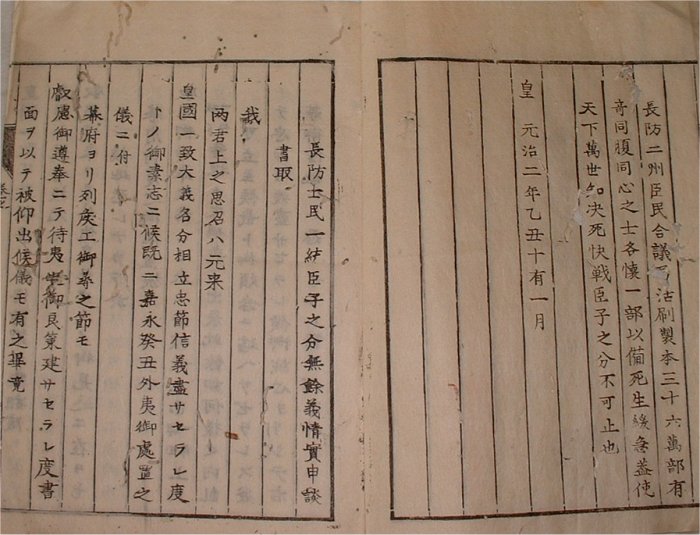 長防二州臣民合議 活刷製本三十六萬部有
奇同腹同心之士各懷一部以備死生緩急蓋使
天下萬世知决死快戦臣子之分不可止也
皇 元治二年乙丑十有一月
長防士民一結臣子之分無餘義情實申談
書取
我
両君上之思召ハ元来
皇國一致大義名分相立忠節信義盡サセラレ度
トノ御素志ニ候既ニ嘉永癸丑外夷御處置之
儀ニ付
幕府ヨリ列侯エ御尋之節モ
叡慮御遵奉ニテ待夷 御良策建サセラレ度書
面ヲ以テ被仰出候儀モ有之畢竟